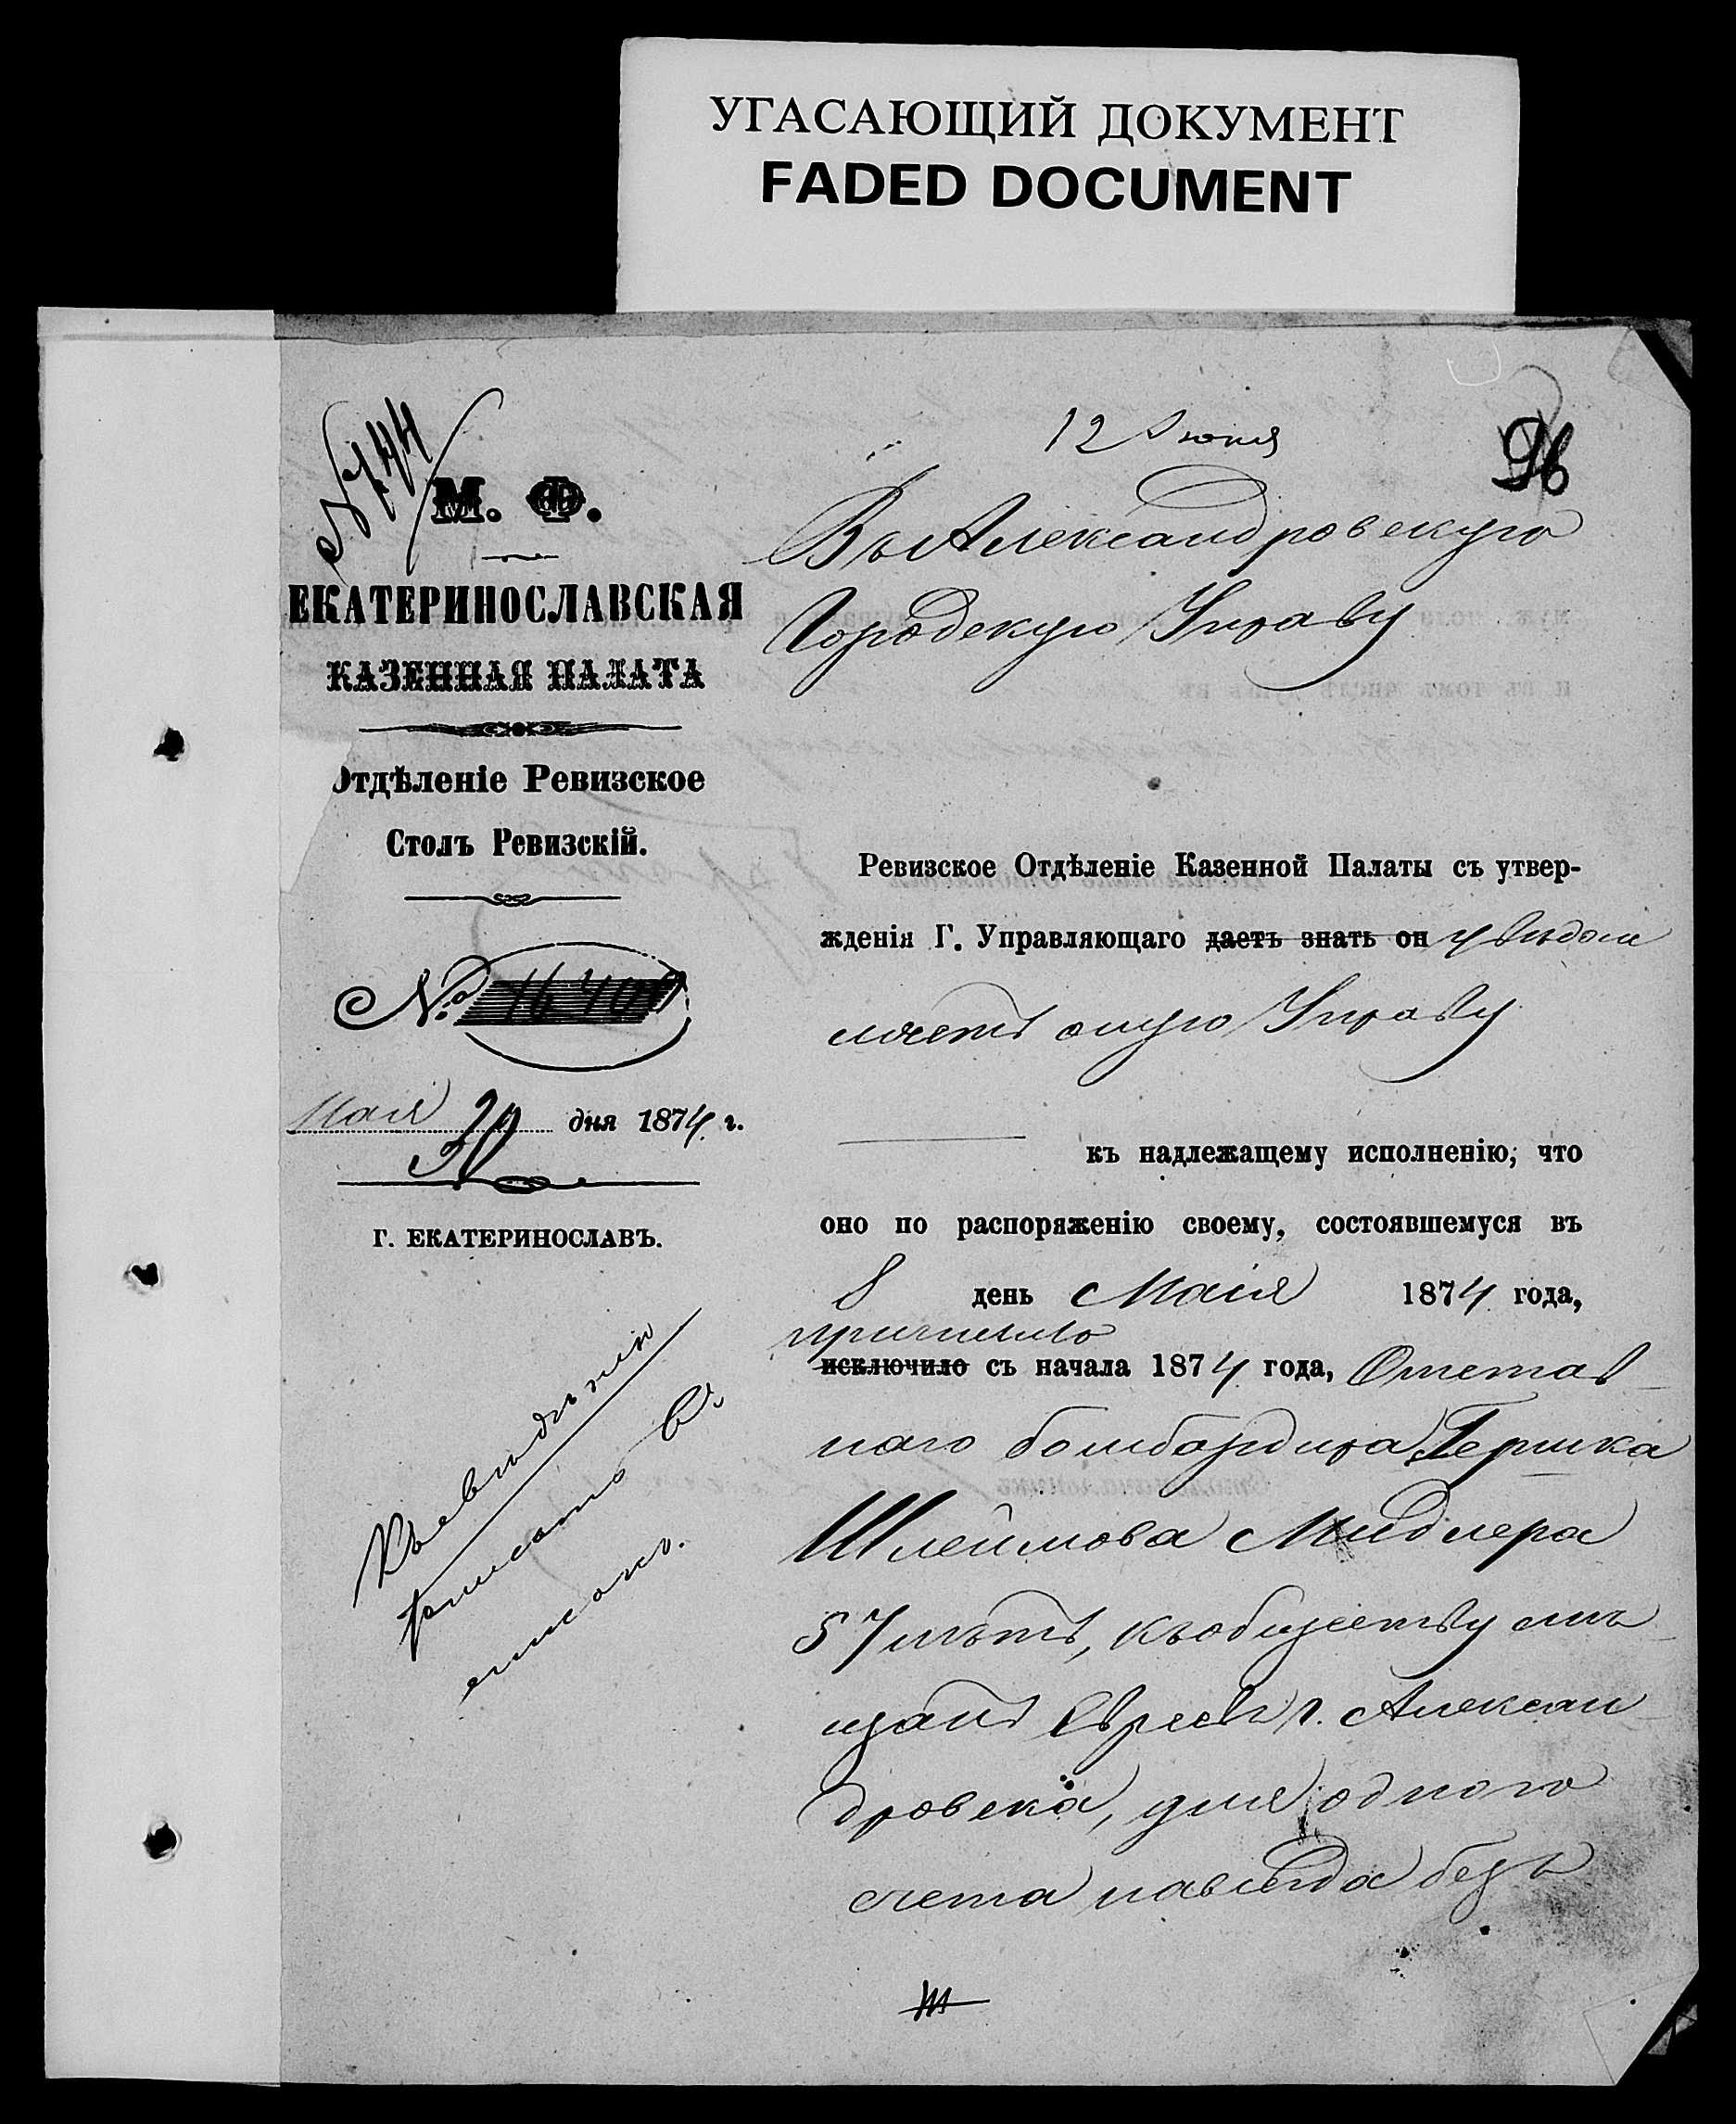 УГАСАЮЩИЙ ДОКУМЕНТ
FADED DOCUMENT
№ 744
М. Ф.
ЕКАТЕРИНОСЛАВСКАЯ
КАЗЕННАЯ ПАЛАТА
Отдѣленіе Ревизское
Столъ Ревизскій.
№
Мая 30 дня 1874 г.
Г. ЕКАТЕРИНОСЛАВЪ.
Къ свѣдѣнію
списокъ.
12 Іюня
96
Въ Александровскую
Городскую Управу
Ревизское Отдѣленіе Казенной Палаты съ утвер-
жденія Г. Управляющаго даетъ знать он увѣдом
ляетъ оную Управу
къ надлежащему исполненію, что
оно по распоряженію своему, состоявшемуся въ
8 день Маія 1874 года,
причислило
исключило съ начала 1874 года, Отстав
наго бомбардира Гершка
Шлеймова Мидлера
57 лѣтъ, къ обществу мѣ
щанъ Евреевъ г. Алексан
дровска, для одного
счета навсегда безъ